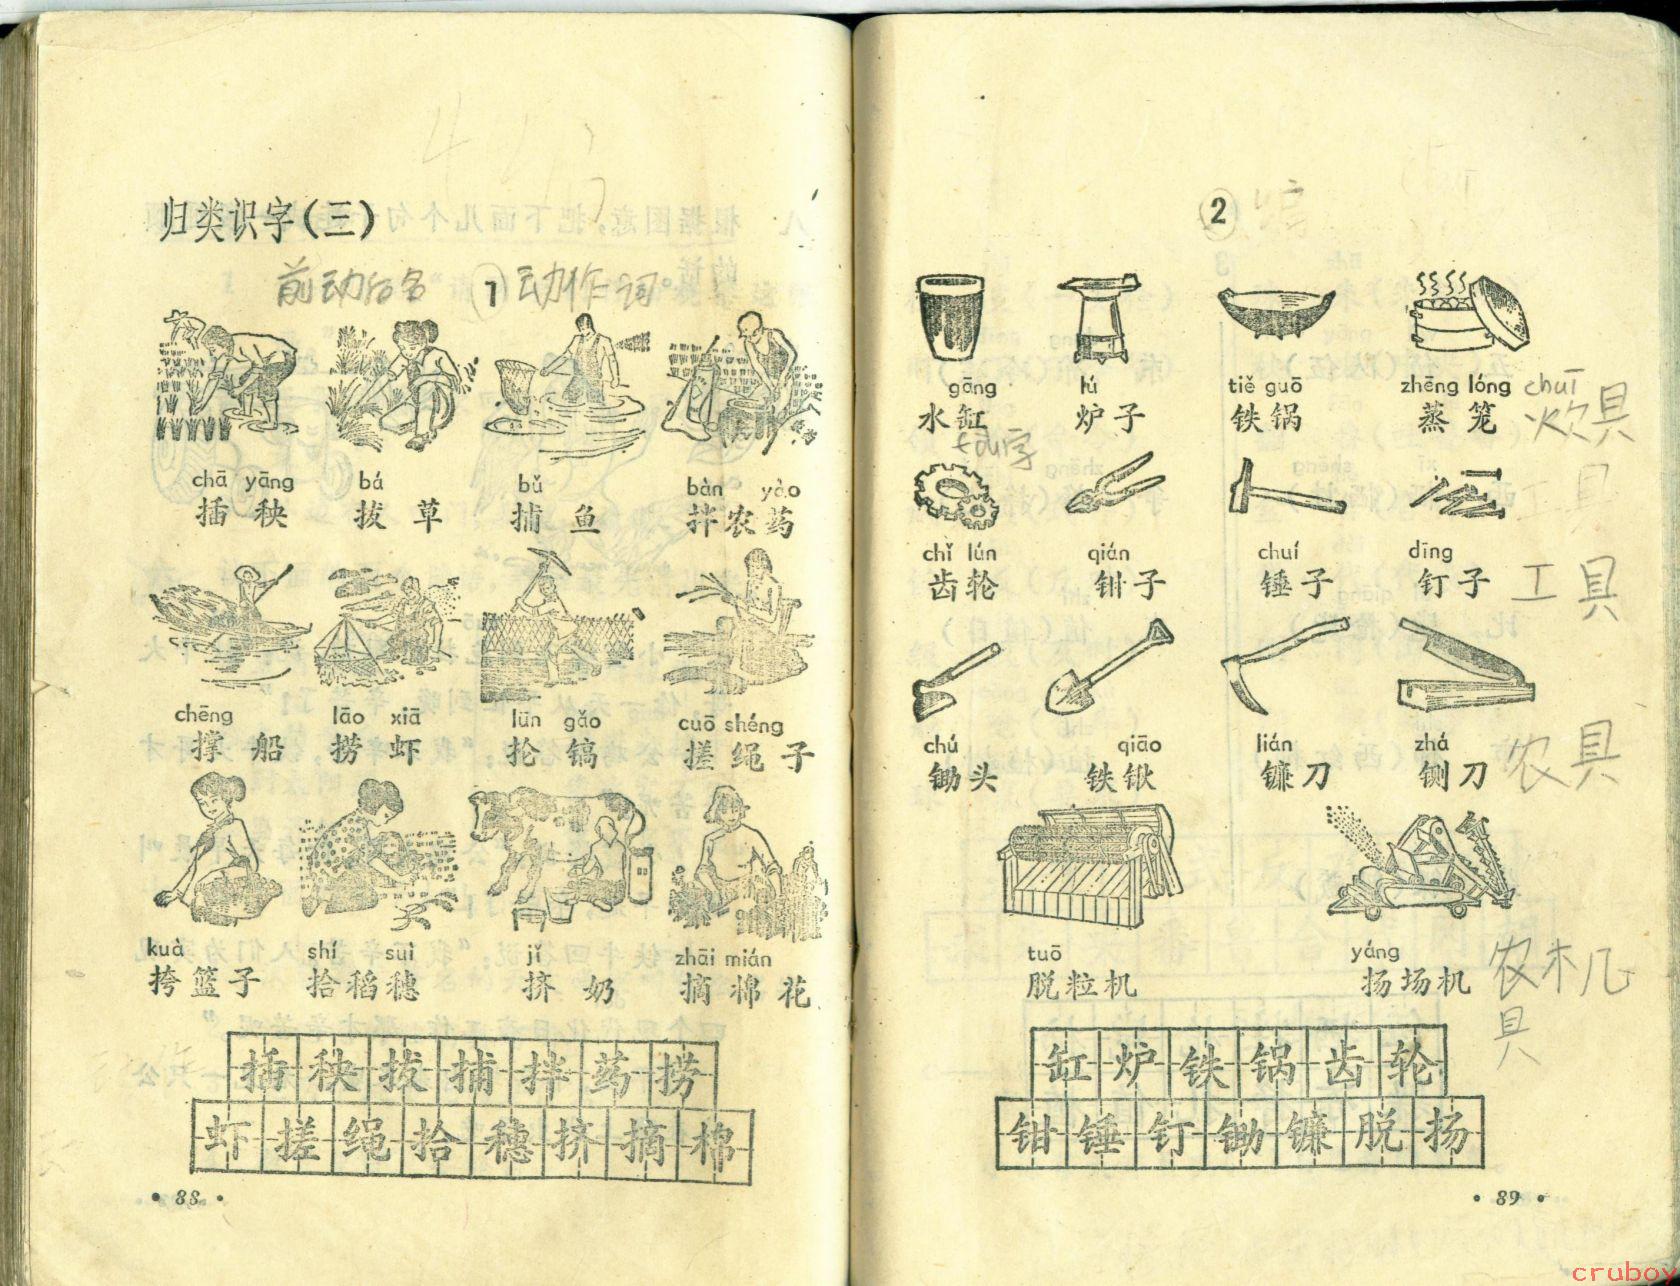 归类识字(三)
前动后名 1 动作词。
chā yāng bá bǔ bàn yào
插秧 拔草 捕鱼 拌农药
chēng lāo xiā lūn gǎo cuō shéng
撑船 捞虾 抡镐 搓绳子
kuà shí suì jǐ zhāi mián
挎篮子 拾稻穗 挤奶 摘棉花
插秧拔捕拌药捞
虾搓绳拾穗挤摘棉
• 88 •
2
gāng lú tiě guō zhēng lóng chuī
水缸 炉子 铁锅 蒸笼 炊具
fǒu字
chǐ lún qián chuí dīng
齿轮 钳子 锤子 钉子 工具
chú qiāo lián zhá
锄头 铁锹 镰刀 铡刀 农具
tuō yáng
脱粒机 扬场机 农机
具
缸炉铁锅齿轮
钳锤钉锄镰脱扬
• 89 •
cruboy